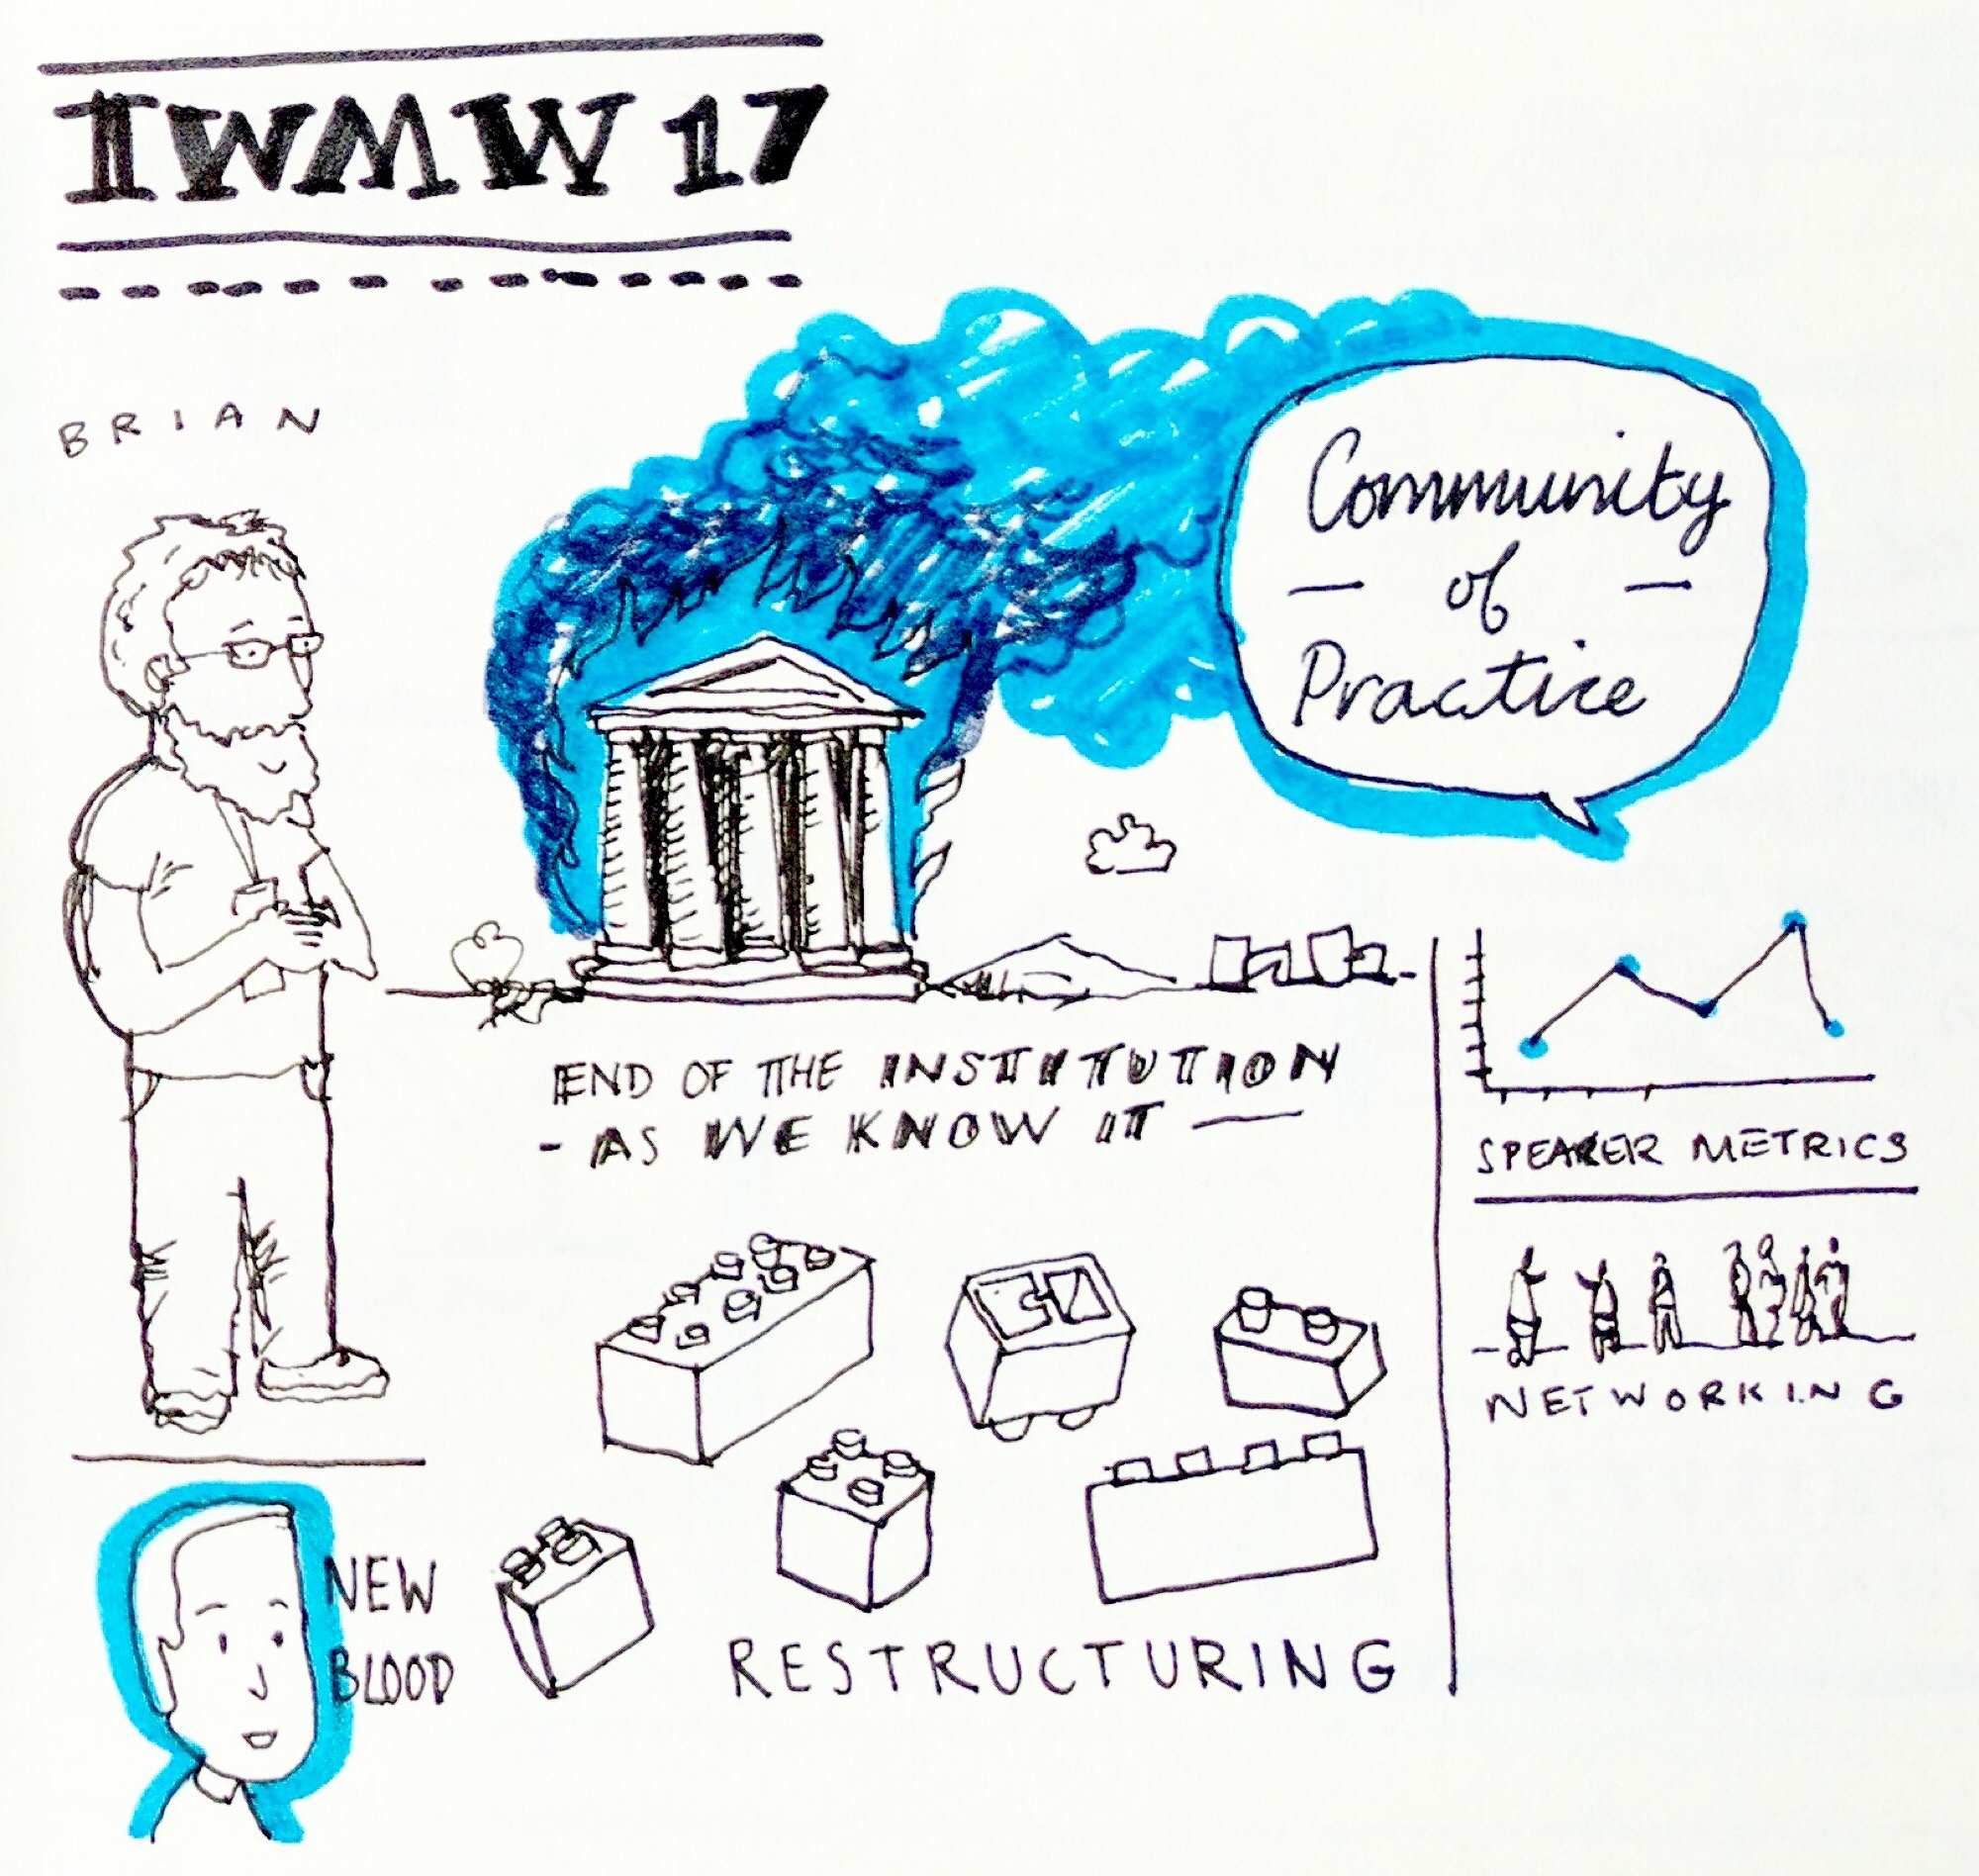 IWMW 17
BRIAN
Community
— of —
Practice
END OF THE INSTITUTION
- AS WE KNOW IT —
SPEAKER METRICS
NETWORKING
NEW
BLOOD
RESTRUCTURING